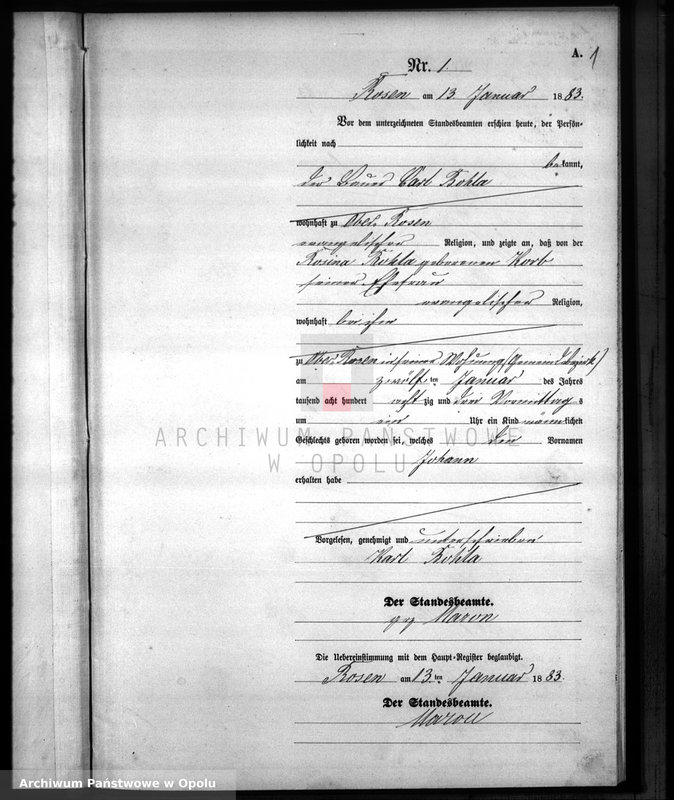 A. 1
Nr. 1
Rosen am 13 Januar 1883.
Vor dem unterzeichneten Standesbeamten erschien heute, der Persön-
lichkeit nach
bekannt,
der Bauer Carl Kohla
wohnhaft zu Ober Rosen
evangelischer Religion, und zeigte an, daß von der
Rosina Kohla geborenen Korb
seiner Ehefrau
evangelischer Religion,
wohnhaft bei ihm
zu Ober Rosen in seiner Wohnung
am zwölften Januar des Jahres
tausend acht hundert achtzig und drei Vormittags
um ein Uhr ein Kind männlichen
Geschlechts geboren worden sei, welches den Vornamen
Johann
erhalten habe
Vorgelesen, genehmigt und unterschrieben
Karl Kohla
Der Standesbeamte.
gez Maron
Die Uebereinstimmung mit dem Haupt-Register beglaubigt.
Rosen am 13ten Januar 1883.
Der Standesbeamte.
Maron
ARCHIWUM PAŃSTWOWE
W OPOLU
Archiwum Państwowe w Opolu